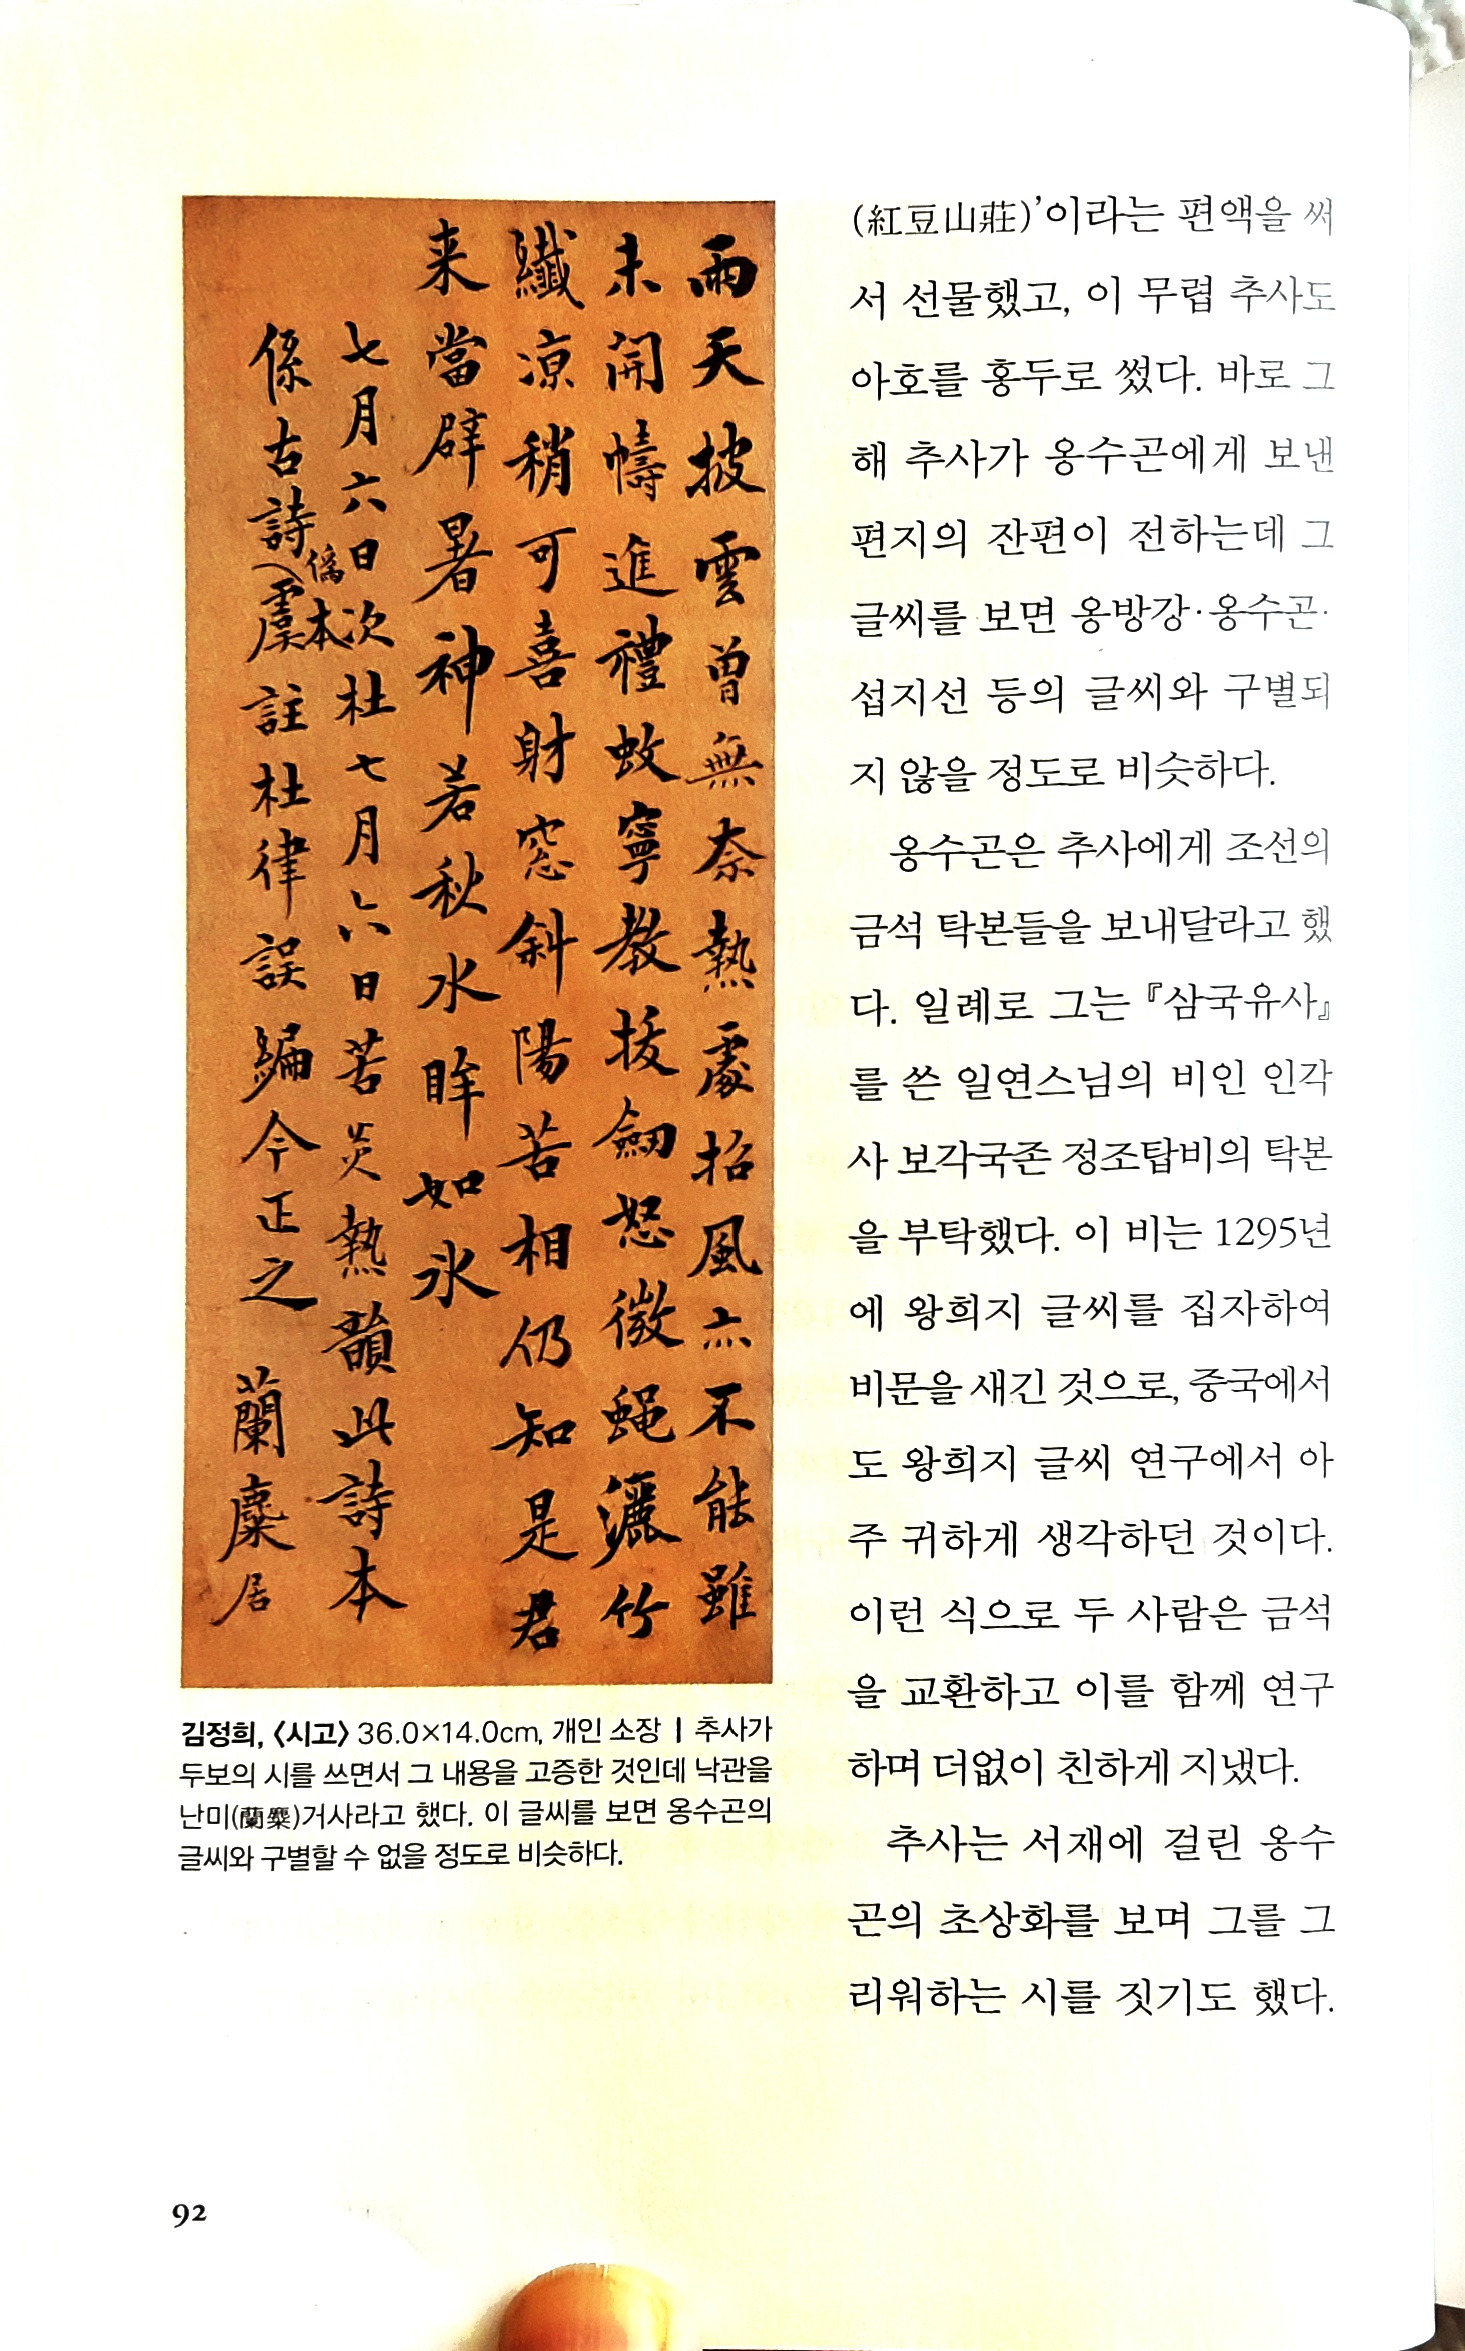 雨天披雲曾無奈熱處招風亦不能雖
未開幬進禮蚊寧教拔劒怒微蝇灑竹
纖凉稍可喜財窓斜陽苦相仍知是君
来當辟暑神若秋水眸如氷
七月六日次杜七月六日苦炎熱韻此詩本
係古詩偽本虞註杜律誤編今正之 蘭麋居
김정희, 〈시고〉 36.0×14.0cm, 개인 소장 | 추사가
두보의 시를 쓰면서 그 내용을 고증한 것인데 낙관을
난미(蘭麋)거사라고 했다. 이 글씨를 보면 옹수곤의
글씨와 구별할 수 없을 정도로 비슷하다.
(紅豆山莊)’이라는 편액을 써
서 선물했고, 이 무렵 추사도
아호를 홍두로 썼다. 바로 그
해 추사가 옹수곤에게 보낸
편지의 잔편이 전하는데 그
글씨를 보면 옹방강·옹수곤·
섭지선 등의 글씨와 구별되
지 않을 정도로 비슷하다.
옹수곤은 추사에게 조선의
금석 탁본들을 보내달라고 했
다. 일례로 그는 『삼국유사』
를 쓴 일연스님의 비인 인각
사 보각국존 정조탑비의 탁본
을 부탁했다. 이 비는 1295년
에 왕희지 글씨를 집자하여
비문을 새긴 것으로, 중국에서
도 왕희지 글씨 연구에서 아
주 귀하게 생각하던 것이다.
이런 식으로 두 사람은 금석
을 교환하고 이를 함께 연구
하며 더없이 친하게 지냈다.
추사는 서재에 걸린 옹수
곤의 초상화를 보며 그를 그
리워하는 시를 짓기도 했다.
92